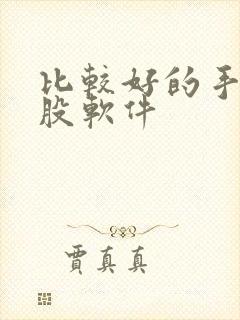 比較好的手
股軟件
賈真真